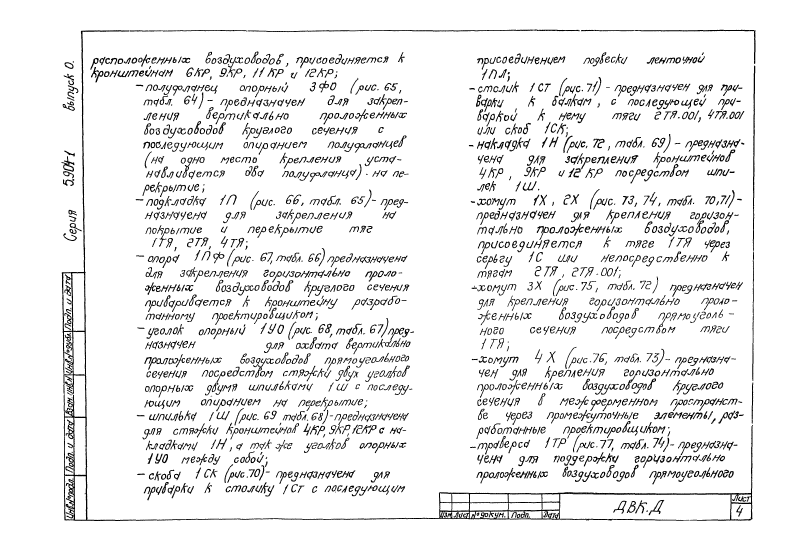 расположенных воздуховодов, присоединяется к
кронштейнам 6КР, 9КР, 11КР и 12КР;
– полуфланец опорный 3ФО (рис. 65,
табл. 64) – предназначен для закреп-
ления вертикально проложенных
воздуховодов круглого сечения с
последующим опиранием полуфланцев
(на одно место крепления уста-
навливается два полуфланца) на пе-
рекрытие;
– подкладка 1П (рис. 66, табл. 65) – пред-
назначена для закрепления на
покрытие и перекрытие тяг
1ТЯ, 2ТЯ, 4ТЯ;
– опора 1ПФ (рис. 67, табл. 66) предназначена
для закрепления горизонтально проло-
женных воздуховодов круглого сечения
приваривается к кронштейну разрабо-
танному проектировщиком;
– уголок опорный 1УО (рис. 68, табл. 67) пред-
назначен для охвата вертикально
проложенных воздуховодов прямоугольного
сечения посредством стяжки двух уголков
опорных двумя шпильками 1Ш с последу-
ющим опиранием на перекрытие;
– шпилька 1Ш (рис. 69 табл. 68) – предназначена
для стяжки кронштейнов 4КР, 9КР, 12КР с на-
кладками 1Н, а так же уголков опорных
1УО между собой;
– скоба 1СК (рис. 70) – предназначена для
приварки к столику 1Ст с последующим
присоединением подвески ленточной
1ПЛ;
– столик 1СТ (рис. 71) – предназначен для при-
варки к балкам, с последующей при-
варкой к нему тяги 2ТЯ.001, 4ТЯ.001
или скоб 1СК;
– накладка 1Н (рис. 72, табл. 69) – предназна-
чена для закрепления кронштейнов
4КР, 9КР и 12КР посредством шпи-
лек 1Ш.
– хомут 1Х, 2Х (рис. 73, 74, табл. 70,71) –
предназначен для крепления горизон-
тально проложенных воздуховодов,
присоединяется к тяге 1ТЯ через
серьгу 1С или непосредственно к
тягам 2ТЯ, 2ТЯ.001;
– хомут 3Х (рис. 75, табл. 72) предназначен
для крепления горизонтально проло-
женных воздуховодов прямоуголь-
ного сечения посредством тяги
1ТЯ;
– хомут 4Х (рис. 76, табл. 73) – предназна-
чен для крепления горизонтально
проложенных воздуховодов круглого
сечения в межферменном пространст-
ве через промежуточные элементы, раз-
работанные проектировщиком;
– траверса 1ТР (рис. 77, табл. 74) – предназна-
чена для поддержки горизонтально
проложенных воздуховодов прямоугольного
Серия 5.904-1 выпуск 0.
Инв.№подл. Подп. и дата Взам. инв.№ Инв.№дубл. Подп. и дата
Изм. Лист № докум. Подп. Дата
ДВК.Д
Лист
4